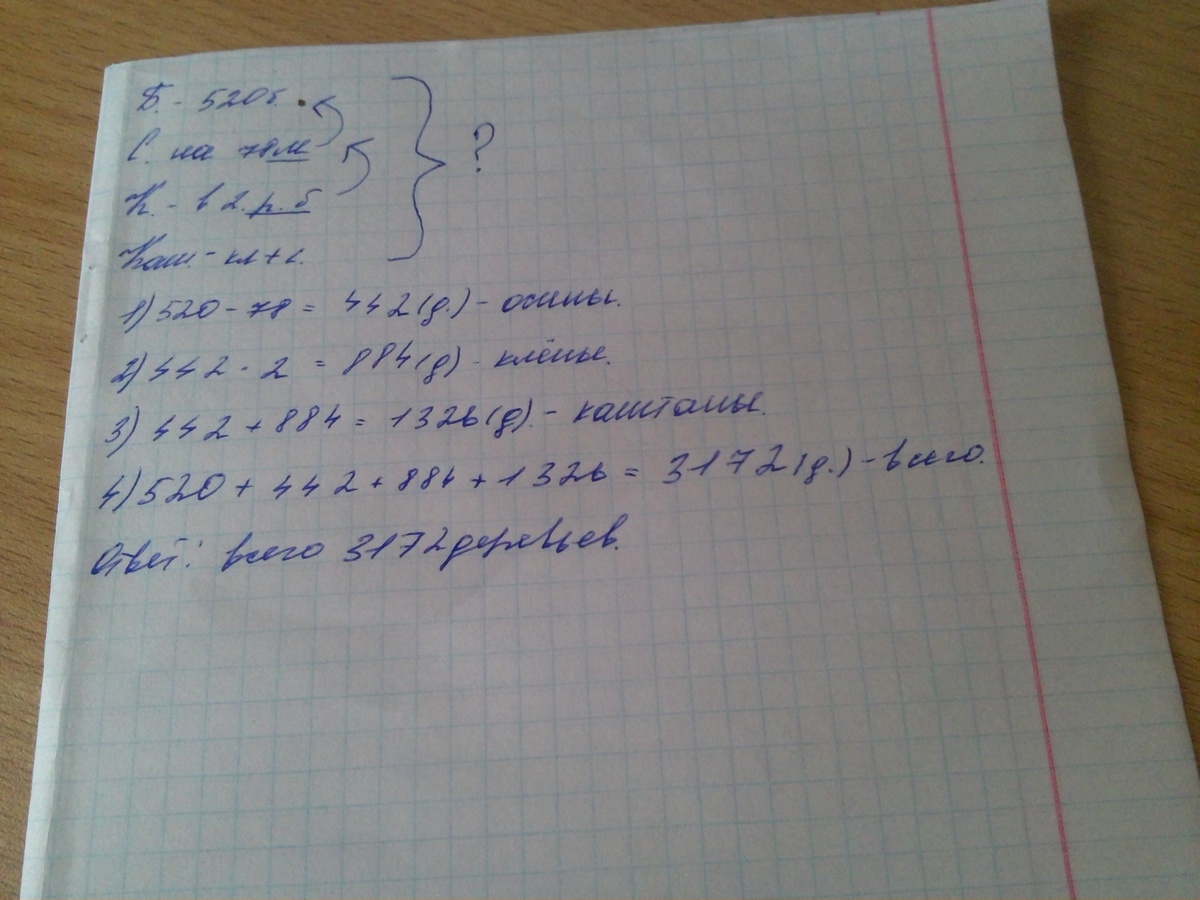 Б. - 520б.
С. на 78м
К. - в 2. р. б
Каш. - кл + с.
?
1) 520 - 78 = 442 (д.) - осины.
2) 442 · 2 = 884 (д) - клёны.
3) 442 + 884 = 1326 (д). - каштаны.
4) 520 + 442 + 884 + 1326 = 3172 (д.) - всего.
Ответ: всего 3172 деревьев.